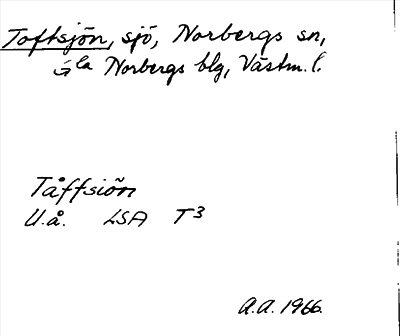 Toftsjön, sjö, Norbergs sn,
G:la Norbergs blg, Västm. l.
Tåffsiön
U.å. LSA T3
A.A. 1966.